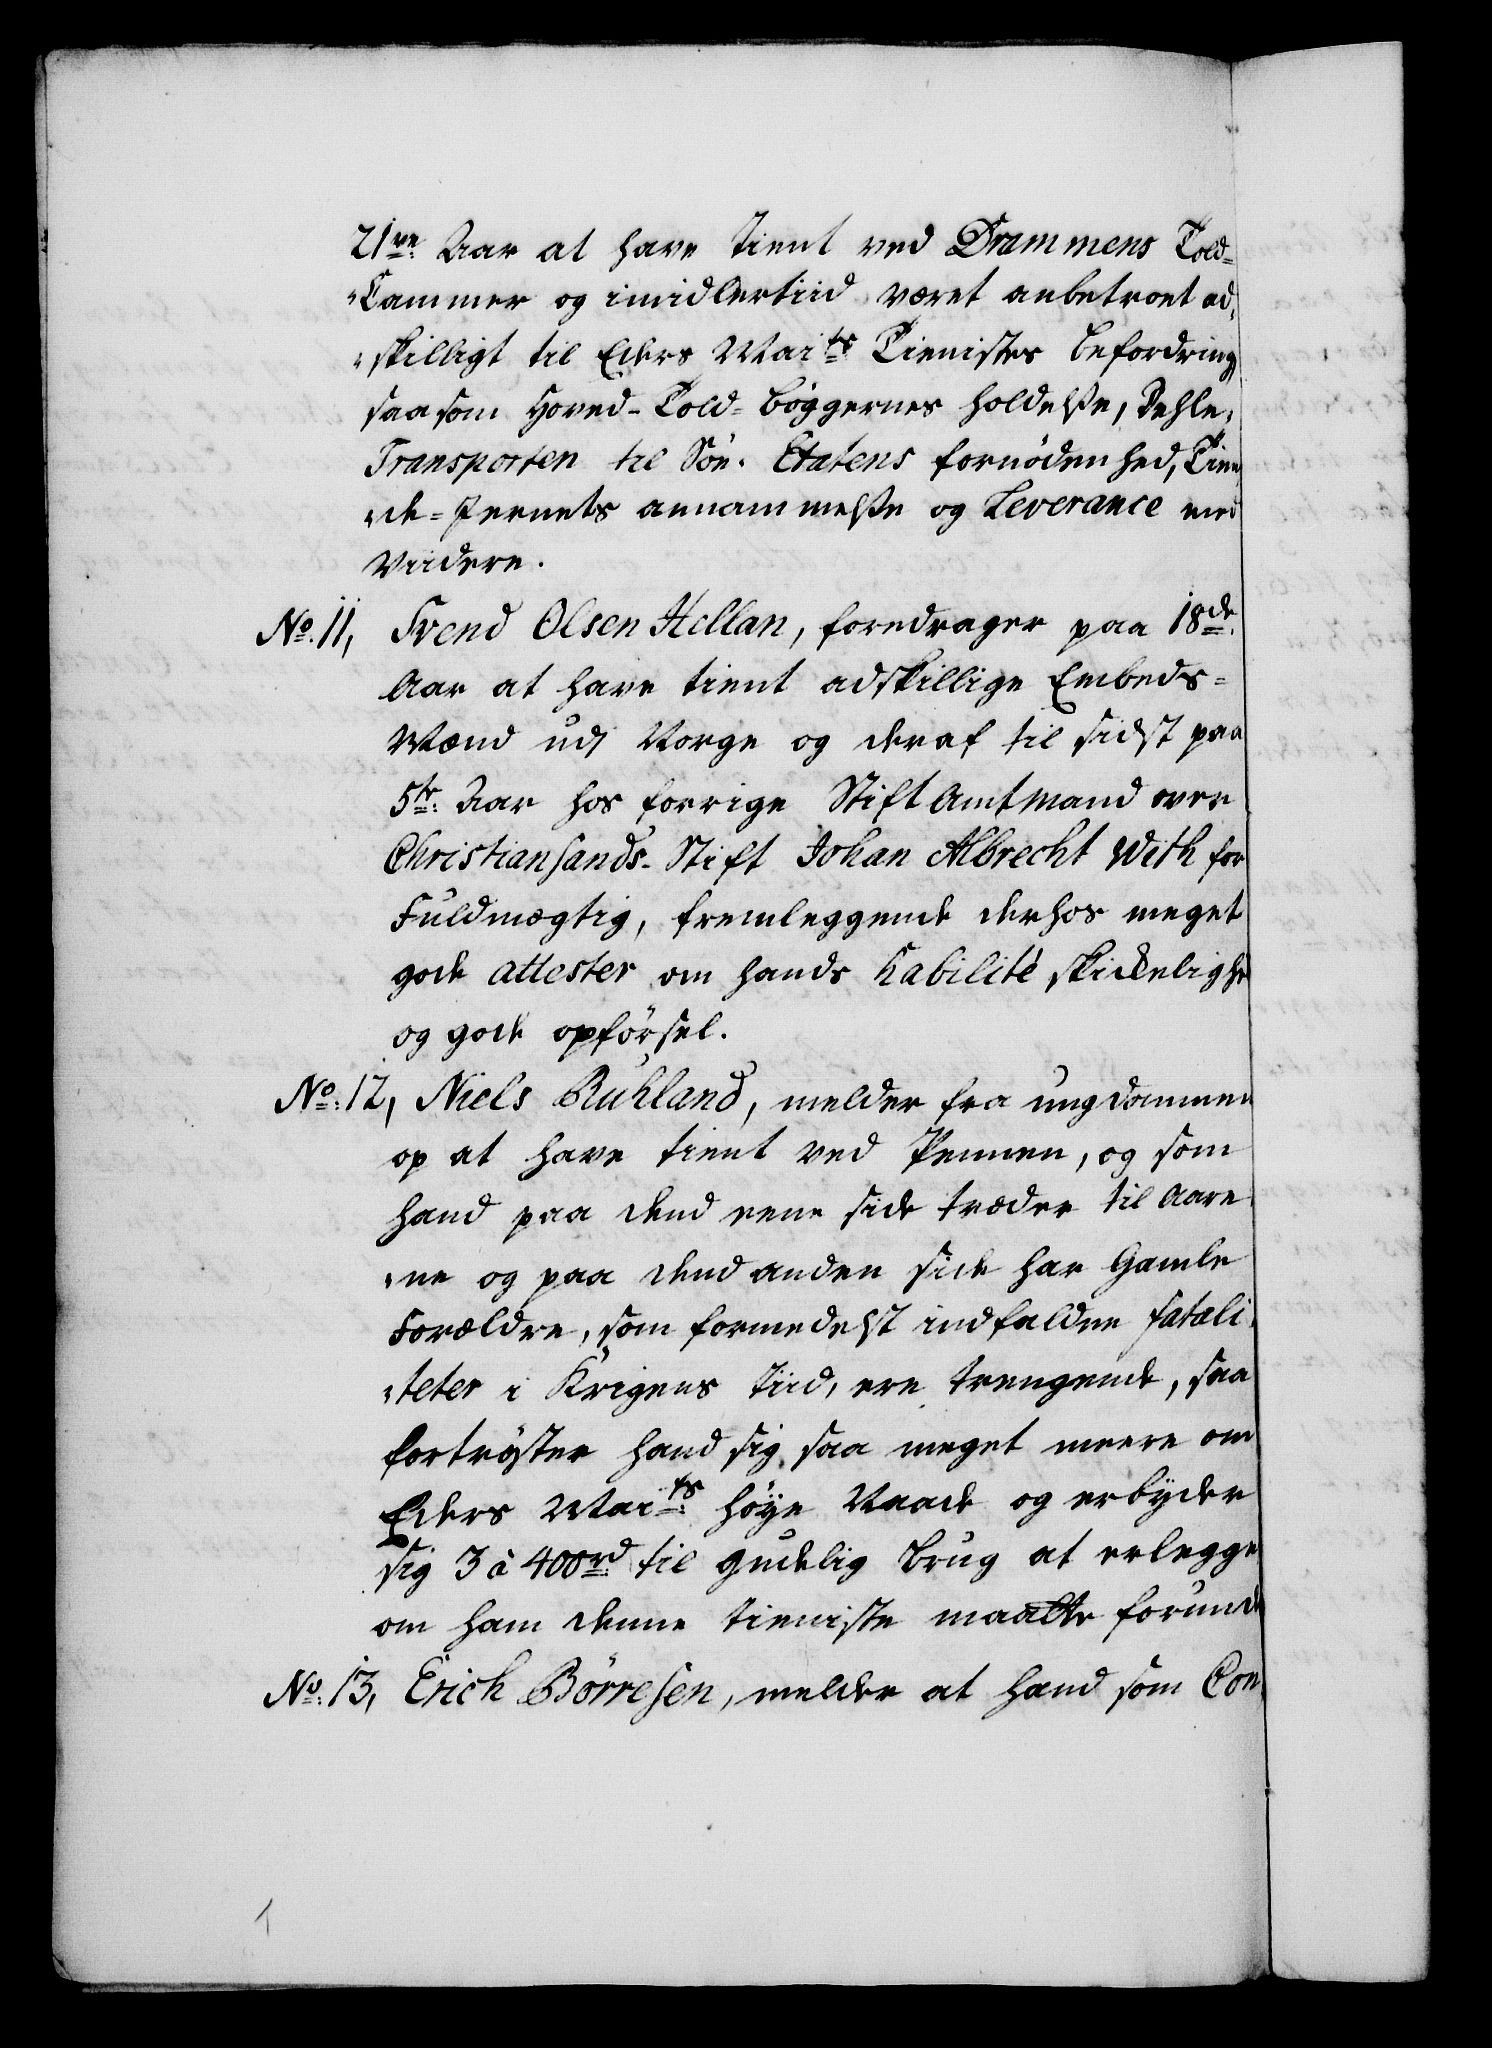 21ve Aar at have tient ved Drammens Told-
Cammer og imidlertiid været anbetroet ad,
skilligt til Eders Maits Tienistes befordring
saasom Hoved-Told-bøggernes holdelse, Dehle,
Transporten til Söe-Etatens fornödenhed, Tien
de-Jernets annammelse og Leverance med
Viidere.
No. 11, Svend Olsen Hellan, foredrager paa 18de
Aar at have tient adskillige Embeds-
Mænd udj Norge og deraf til sidst paa
5te Aar hos forrige Stiftamtmand over
Christiansands-Stift Johan Albrecht With for
Fuldmægtig, fremleggende derhos meget
gode attester om hands habilité skickelighd
og gode opförsel.
No. 12, Niels Ruhland, melder fra ungdommen
op at have tient ved Pennen, og som
hand paa dend eene side træder til Aare
ne og paa dend anden side har Gamle
Forældre, som formedelst indfaldne fatali
teter i Krigens tiid, ere trengende, saa
fortröster hand sig saa meget meere om
Eders Maits höye Naade og erbyder
sig 3 à 400rd til gudelig brug at erlegge
om ham denne tieniste maatte forunde
No. 13, Erich Börresen, melder at hand som Con